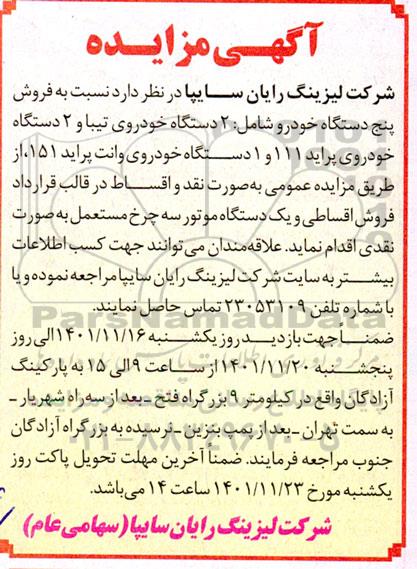 آگهی مزایده
شرکت لیزینگ رایان سایپا در نظر دارد نسبت به فروش
پنج دستگاه خودرو شامل: ۲ دستگاه خودروی تیبا و ۲ دستگاه
خودروی پراید ۱۱۱ و ۱ دستگاه خودروی وانت پراید ۱۵۱، از
طریق مزایده عمومی به‌صورت نقد و اقساط در قالب قرارداد
فروش اقساطی و یک دستگاه موتور سه چرخ مستعمل به صورت
نقدی اقدام نماید. علاقه‌مندان می‌توانند جهت کسب اطلاعات
بیشتر به سایت شرکت لیزینگ رایان سایپا مراجعه نموده و یا
با شماره تلفن ۲۳۰۵۳۱۰۹ تماس حاصل نمایند.
ضمناً جهت بازدید روز یکشنبه ۱۴۰۱/۱۱/۱۶ الی روز
پنجشنبه ۱۴۰۱/۱۱/۲۰ از ساعت ۹ الی ۱۵ به پارکینگ
آزادگان واقع در کیلومتر ۹ بزرگراه فتح ـ بعد از سه راه شهریار ـ
به سمت تهران ـ بعد از پمپ بنزین ـ نرسیده به بزرگراه آزادگان
جنوب مراجعه فرمایند. ضمناً آخرین مهلت تحویل پاکت روز
یکشنبه مورخ ۱۴۰۱/۱۱/۲۳ ساعت ۱۴ می‌باشد.
شرکت لیزینگ رایان سایپا (سهامی عام)
ParsNamadData
۰۲۱-۸۸۳۴۹۶۷۰-۵